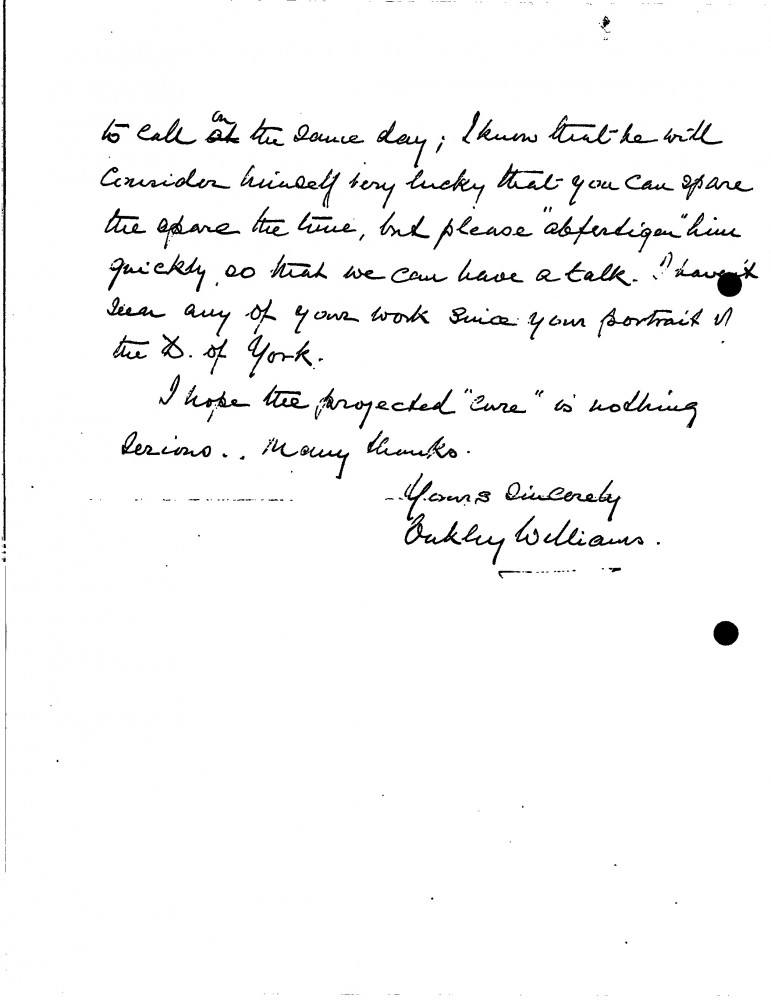 to call on at the same day; I know that he will
consider himself very lucky that you can spare
the spare the time, but please "abfertigen" him
quickly, so that we can have a talk. I haven't
seen any of your work since your portrait of
the D. of York.
I hope the projected "cure" is nothing
serious.. Many thanks.
Yours sincerely
Oakley Williams.